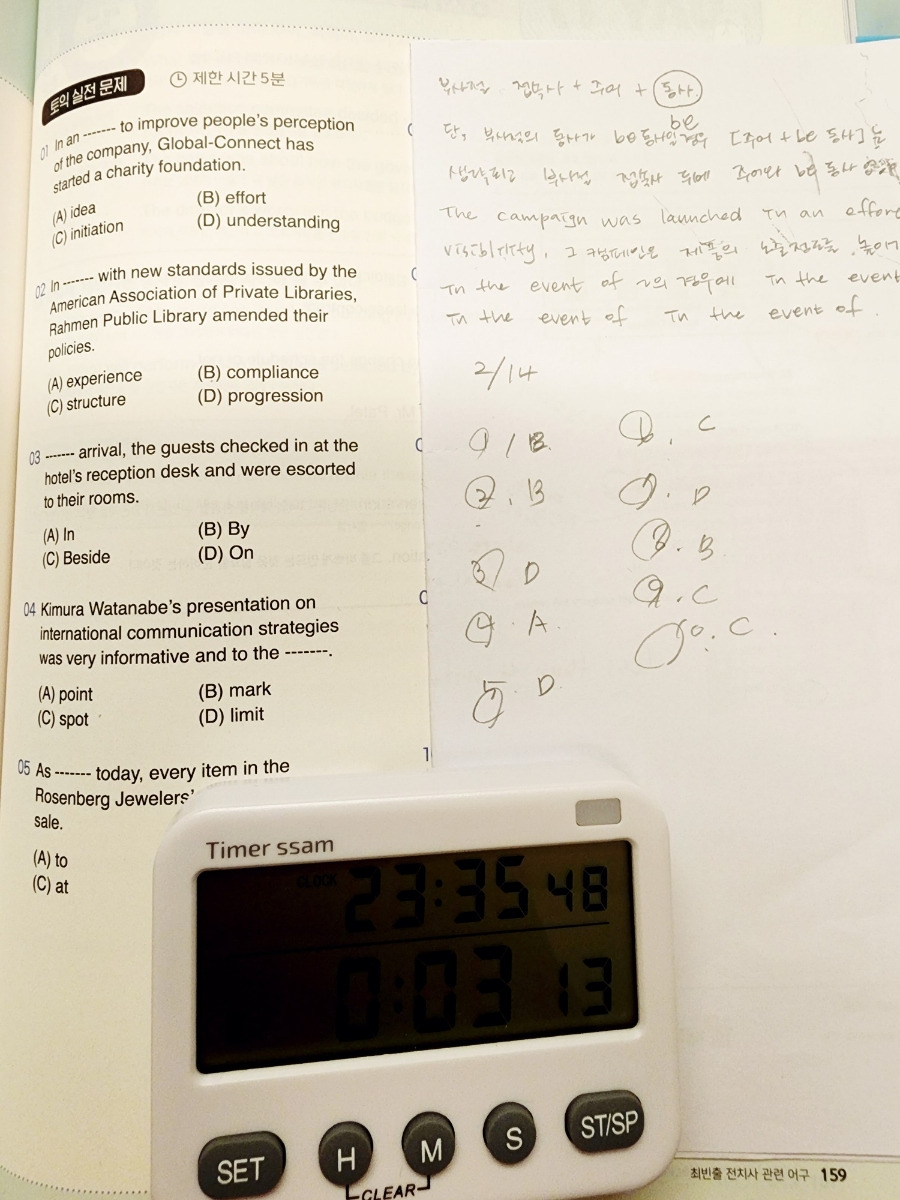 토익 실전 문제
제한 시간 5분
01 In an ------- to improve people's perception
of the company, Global-Connect has
started a charity foundation.
(A) idea
(B) effort
(C) initiation
(D) understanding
02 In ------- with new standards issued by the
American Association of Private Libraries,
Rahmen Public Library amended their
policies.
(A) experience
(B) compliance
(C) structure
(D) progression
03 ------- arrival, the guests checked in at the
hotel's reception desk and were escorted
to their rooms.
(A) In
(B) By
(C) Beside
(D) On
04 Kimura Watanabe's presentation on
international communication strategies
was very informative and to the -------.
(A) point
(B) mark
(C) spot
(D) limit
05 As ------- today, every item in the
Rosenberg Jewelers'
sale.
(A) to
(C) at
부사절 접속사 + 주어 + 동사
be
단, 부사절의 동사가 be동사일 경우 [주어 + be 동사]는
생략되고 부사절 접속사 뒤에 주어와 be 동사
The campaign was launched in an effort
visiblity, 그 캠페인은 제품의 노출정도를 높이기
In the event of ~의 경우에 In the event
In the event of In the event of
2/14
1/ B
2. B
3) D
4. A
5. D
6. C
7. D
8. B
9. C
10. C.
Timer ssam
CLOCK 23:35 48
0:03 13
SET
H
M
S
ST/SP
CLEAR
최빈출 전치사 관련 어구 159